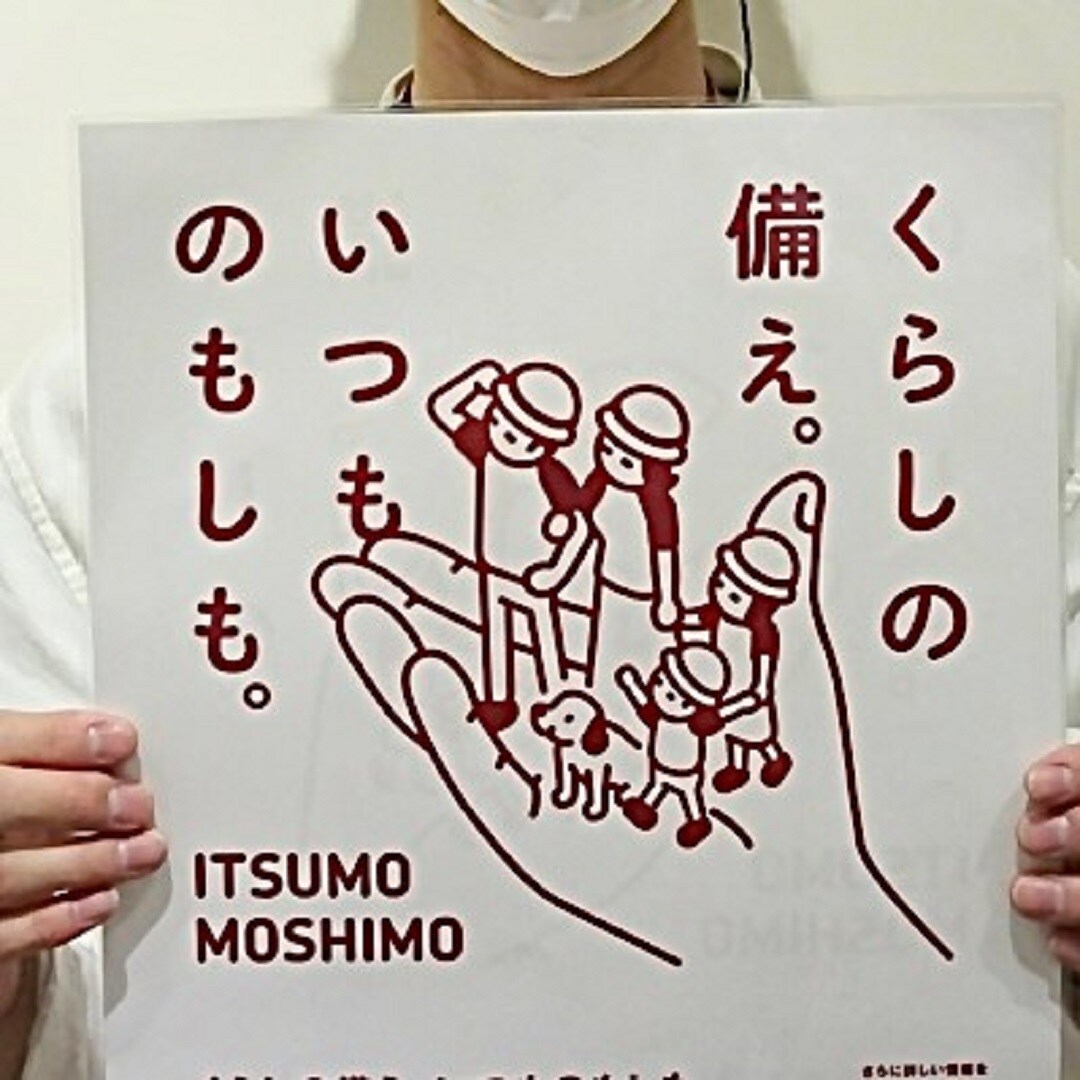 くらしの
備え。
いつも
のもしも。
ITSUMO
MOSHIMO
さらに詳しい情報を